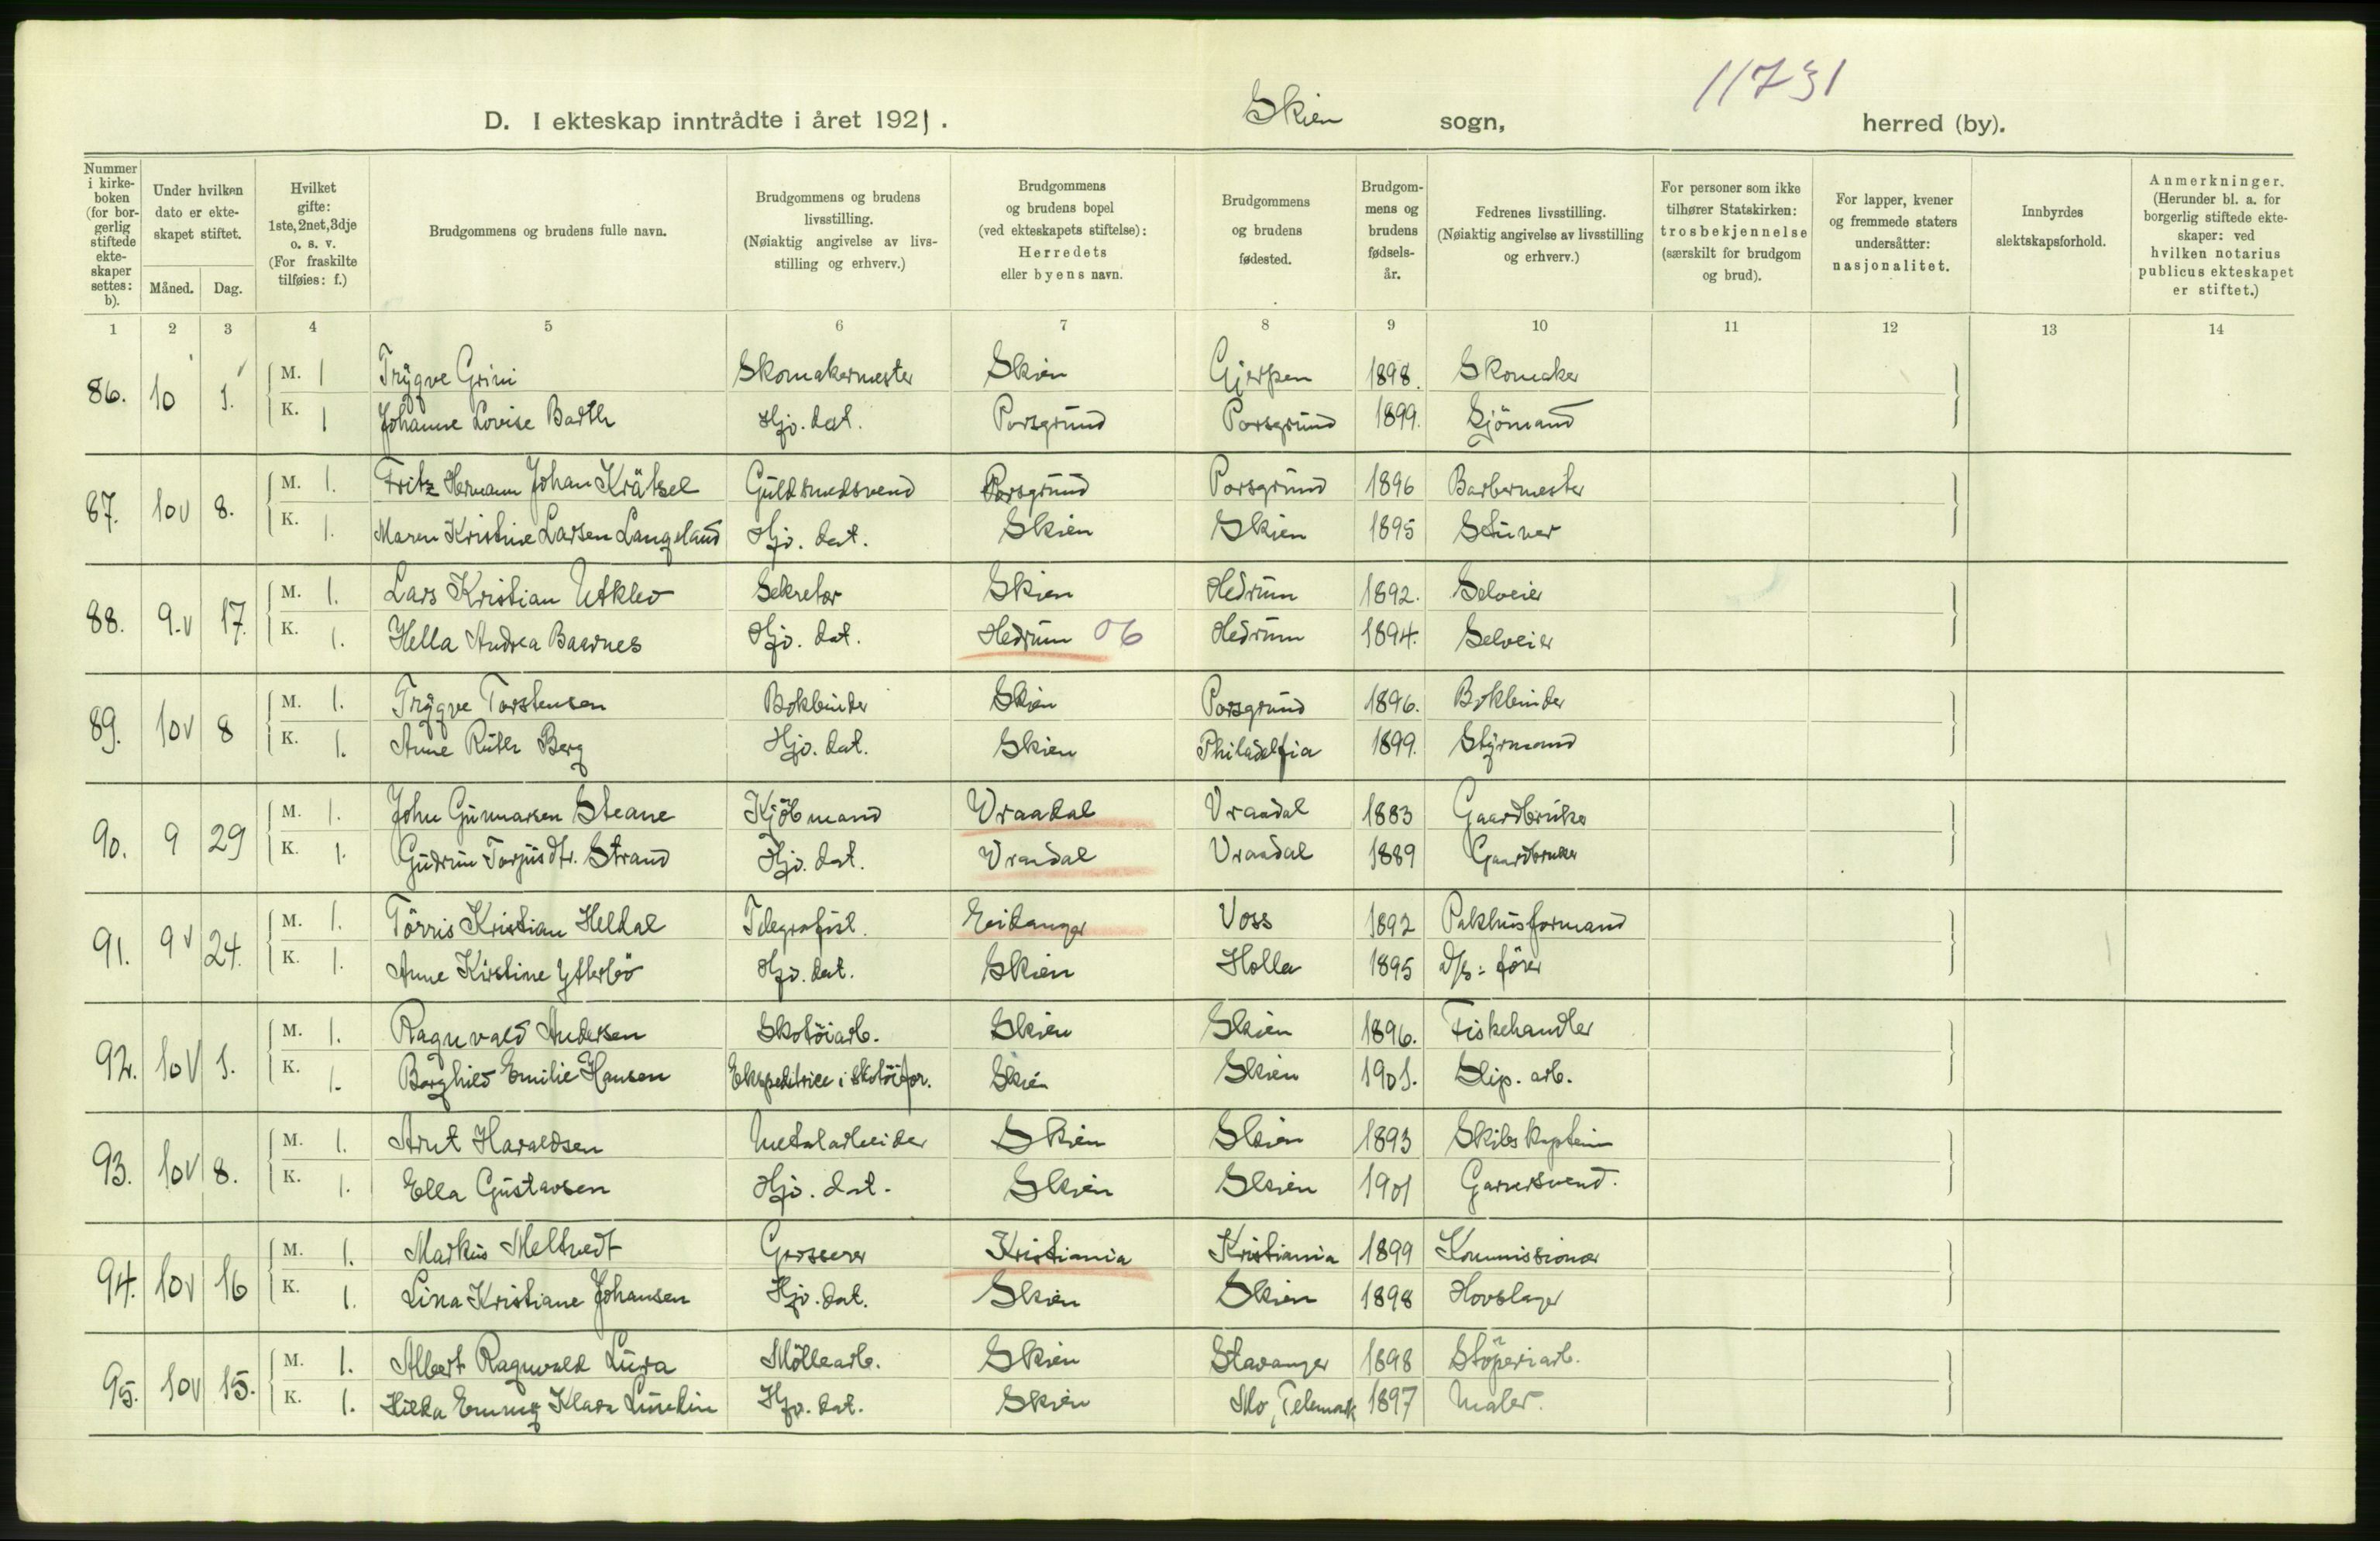 11731
D. I ekteskap inntrådte i året 1921. Skien sogn, herred (by).
Nummer i kirkeboken (for borgerlig stiftede ekteskaper settes: b).
Under hvilken dato er ekteskapet stiftet.
Måned. Dag.
Hvilket gifte: 1ste, 2net, 3dje o. s. v. (For fraskilte tilføies: f.)
Brudgommens og brudens fulle navn.
Brudgommens og brudens livsstilling. (Nøiaktig angivelse av livsstilling og erhverv.)
Brudgommens og brudens bopel (ved ekteskapets stiftelse): Herredets eller byens navn.
Brudgommens og brudens fødested.
Brudgommens og brudens fødselsår.
Fedrenes livsstilling. (Nøiaktig angivelse av livsstilling og erhverv.)
For personer som ikke tilhører Statskirken: trosbekjennelse (særskilt for brudgom og brud).
For lapper, kvener og fremmede staters undersåtter: nasjonalitet.
Innbyrdes slektskapsforhold.
Anmerkninger. (Herunder bl. a. for borgerlig stiftede ekteskaper: ved hvilken notarius publicus ekteskapet er stiftet.)
1 2 3 4 5 6 7 8 9 10 11 12 13 14
86. 10 1. M. 1 Trygve Grini Skomakermester Skien Gjerpen 1898. Skomaker
K. 1 Johanne Lovise Barth Hjv. dat. Porsgrund Porsgrund 1899. Sjömand
87. 10 v 8. M. 1. Fritz Hermann Johan Krätsel Guldsmedsvend Porsgrund Porsgrund 1896 Barbermester
K. 1. Maren Kristine Larsen Langeland Hjv. dat. Skien Skien 1895 Stuver
88. 9. v 17. M. 1. Lars Kristian Utklev Sekretær Skien Hedrum 1892. Selveier
K. 1. Hella Andrea Baarnes Hjv. dat. Hedrum 06 Hedrum 1894. Selveier
89. 10 v 8 M. 1. Trygve Torstensen Bokbinder Skien Porsgrund 1896. Bokbinder
K. 1. Anne Ruth Berg Hjv. dat. Skien Philadelfia 1899. Styrmand
90. 9 29 M. 1. John Gunnarsen Steane Kjöbmand Vraadal Vraadal 1883 Gaardbruker
K. 1. Gudrun Torjusdtr. Strand Hjv. dat. Vraadal Vraadal 1889 Gaardbruker
91. 9 v 24. M. 1. Törris Kristian Heldal Telegrafist. Eidanger Voss 1892 Pakhusformand
K. 1. Anne Kirstine Ytterbö Hjv. dat. Skien Holla 1895 d/s: förer
92. 10 v 1. M. 1. Ragnvald Andersen Skotöiarb. Skien Skien 1896. Fiskehandler
K. 1. Borghild Emilie Hansen Ekspeditrice i skotöifor. Skien Skien 1901. Slip. arb.
93. 10 v 8. M. 1. Arnt Haraldsen Metalarbeider Skien Skien 1893 Skibskaptein
K. 1. Ella Gustavsen Hjv. dat. Skien Skien 1901 Garversvend.
94. 10 v 16 M. 1. Markus Meltvedt Grosserer Kristiania Kristiania 1899 Kommissionær
K. 1. Lina Kristiane Johansen Hjv. dat. Skien Skien 1898 Hovslager
95. 10 v 15. M. 1. Albert Ragnvald Lura Möllearb. Skien Stavanger 1898 Stöperiarb.
K. 1. Hilda Emmy Klara Lundin Hjv. dat. Skien Mo, Telemark 1897 Maler.